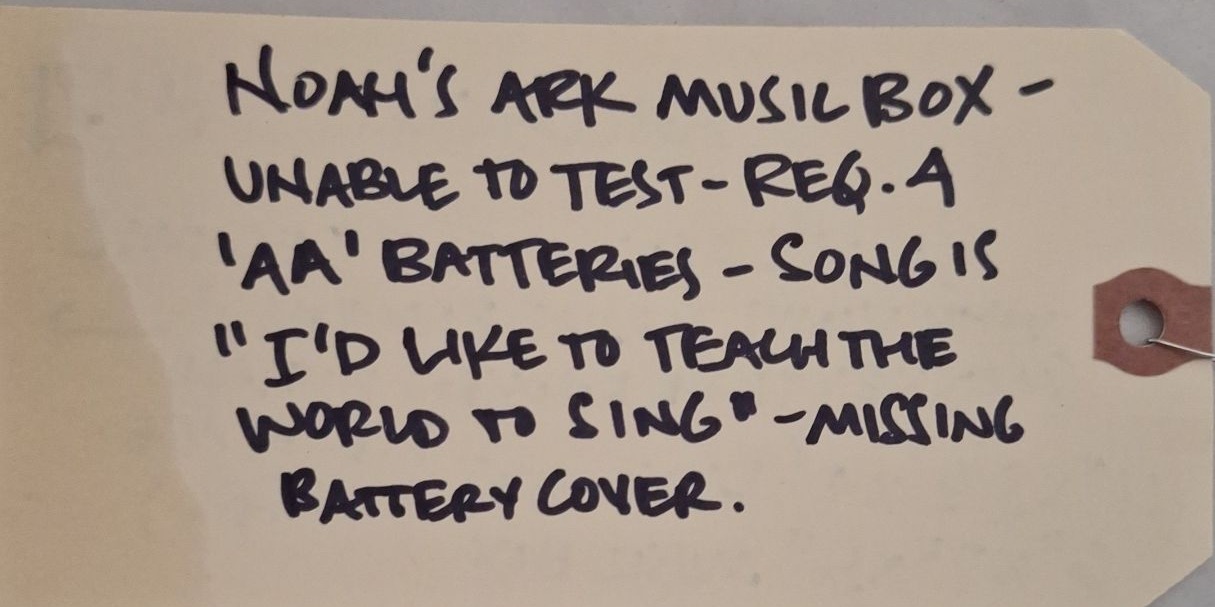 NOAH'S ARK MUSIC BOX -
UNABLE TO TEST - REQ. 4
'AA' BATTERIES - SONG IS
"I'D LIKE TO TEACH THE
WORLD TO SING" - MISSING
BATTERY COVER.